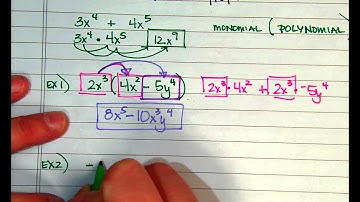 3x⁴ + 4x⁵
3x⁴ · 4x⁵ 12x⁹ MONOMIAL (POLYNOMIAL)
EX1) 2x³(4x² - 5y⁴) 2x³·4x² + 2x³·-5y⁴
8x⁵-10x³y⁴
EX2) -